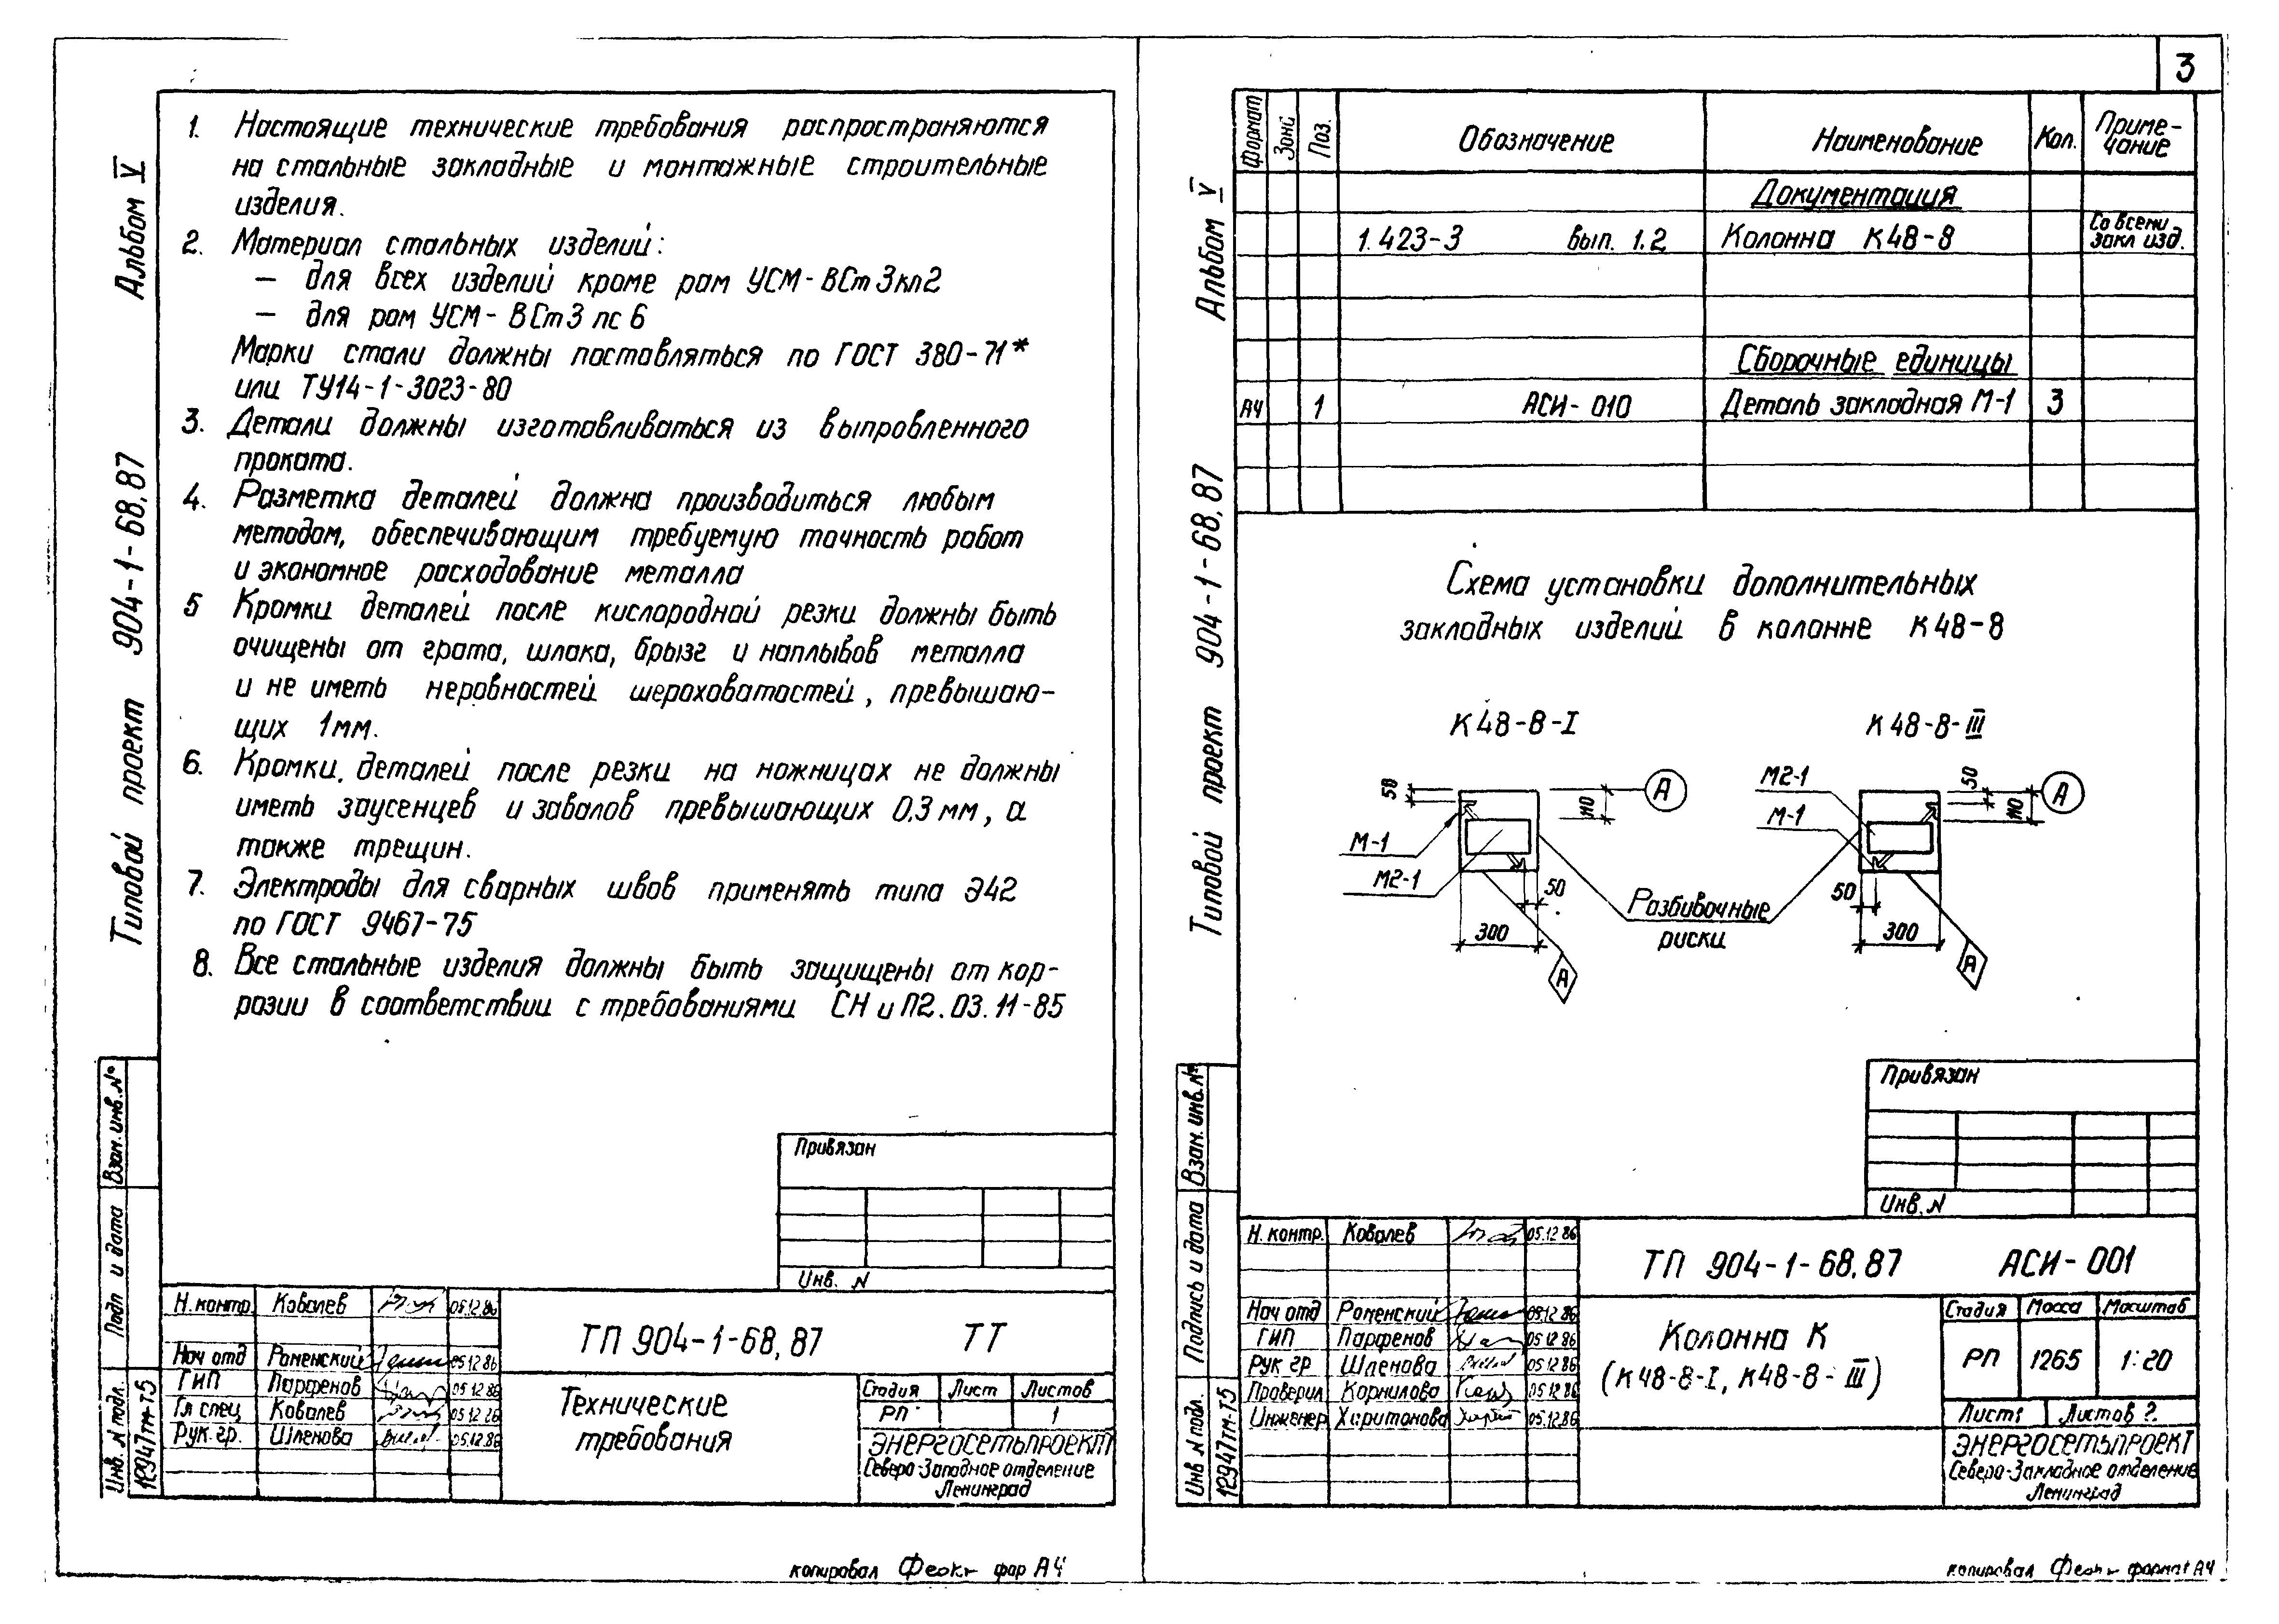 3
Альбом V
Типовой проект 904-1-68.87
1. Настоящие технические требования распространяются
на стальные закладные и монтажные строительные
изделия.
2. Материал стальных изделий:
— для всех изделий кроме рам УСМ-ВСт3кп2
— для рам УСМ-ВСт3пс6
Марки стали должны поставляться по ГОСТ 380-71*
или ТУ14-1-3023-80
3. Детали должны изготавливаться из выправленного
проката.
4. Разметка деталей должна производиться любым
методом, обеспечивающим требуемую точность работ
и экономное расходование металла
5 Кромки деталей после кислородной резки должны быть
очищены от грата, шлака, брызг и наплывов металла
и не иметь неровностей шероховатостей, превышаю-
щих 1мм.
6. Кромки деталей после резки на ножницах не должны
иметь заусенцев и завалов превышающих 0,3 мм, а
также трещин.
7. Электроды для сварных швов применять типа Э42
по ГОСТ 9467-75
8. Все стальные изделия должны быть защищены от кор-
розии в соответствии с требованиями СН и П2.03.11-85
Взам.инв.№
Подп и дата
Инв. N подл.
12947тм-т5
Привязан
Инв. N
Н.контр. Ковалев 05.12.86
Нач отд Роменский 05.12.86
ГИП Парфенов 05.12.86
Гл спец Ковалев 05.12.86
Рук.гр. Шленова 05.12.86
ТП 904-1-68.87 ТТ
Технические
требования
Стадия Лист Листов
РП 1
ЭНЕРГОСЕТЬПРОЕКТ
Северо-Западное отделение
Ленинград
копировал фор А4
Альбом V
Типовой проект 904-1-68.87
Формат Зона Поз. Обозначение Наименование Кол. Приме-
чание
Документация
1.423-3 вып. 1.2 Колонна К48-8 Со всеми
закл изд.
Сборочные единицы
А4 1 АСИ-010 Деталь закладная М-1 3
Схема установки дополнительных
закладных изделий в колонне К48-8
К48-8-I
К48-8-III
50
110
А
М-1
М2-1
50
300
А
Разбивочные
риски
М2-1
М-1
50
110
А
50
300
А
Взам.инв.№
Подпись и дата
Инв N подл.
12947тм-т5
Привязан
Инв. N
Н.контр. Ковалев 05.12.86
Нач отд Роменский 05.12.86
ГИП Парфенов 05.12.86
Рук гр Шленова 05.12.86
Проверил Корнилова 05.12.86
Инженер Харитонова 05.12.86
ТП 904-1-68.87 АСИ-001
Колонна К
(К48-8-I, К48-8-III)
Стадия Масса Масштаб
РП 1265 1:20
Лист 1 Листов 2
ЭНЕРГОСЕТЬПРОЕКТ
Северо-Западное отделение
Ленинград
копировал формат А4